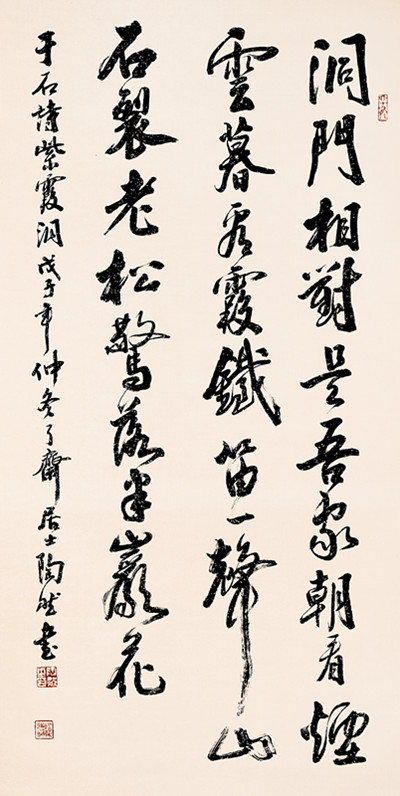 洞門相對是吾家朝看煙
雲暮看霞鐵笛一聲山
石裂老松驚落半巖花
于石詩紫霞洞戊子年仲冬了齋居士陶然書